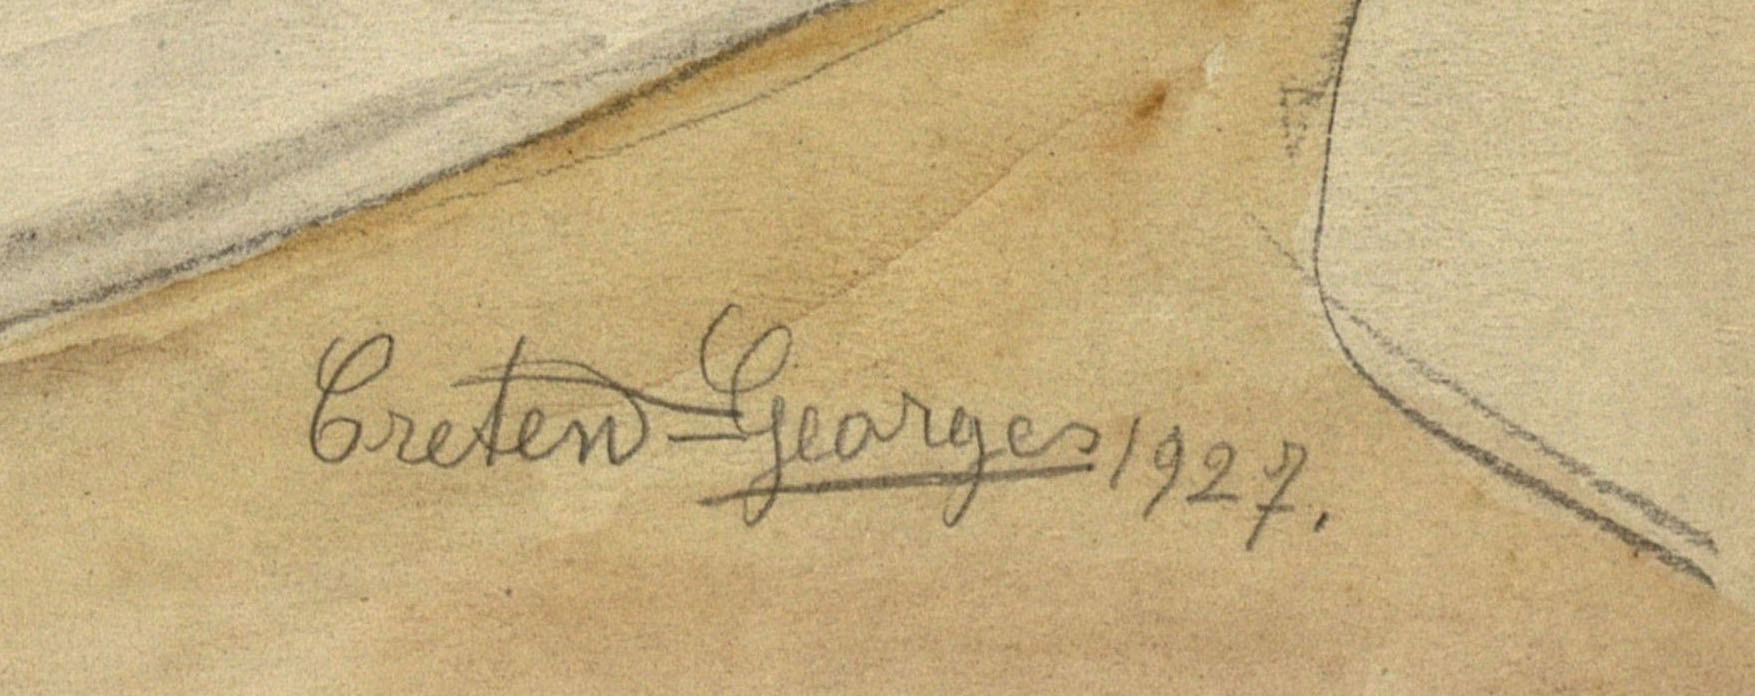 Creten=Georges 1927.